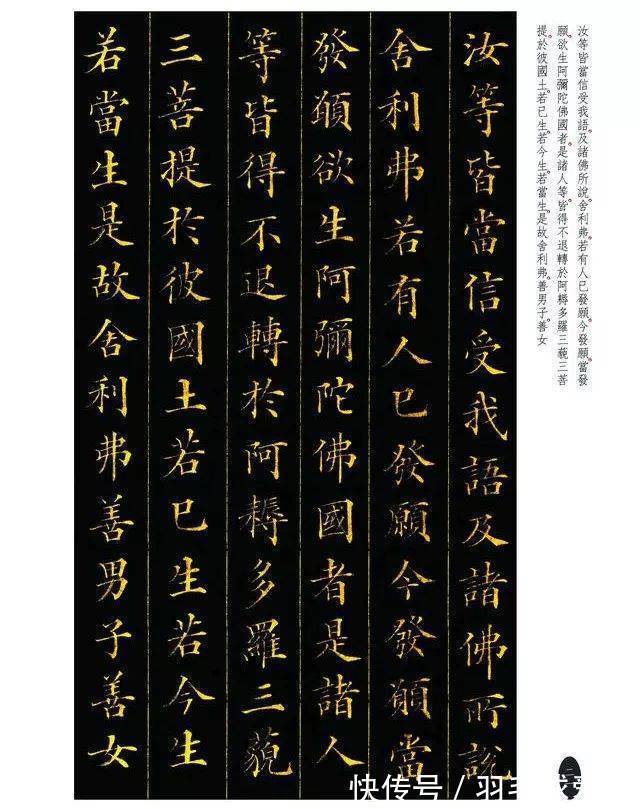 汝等皆當信受我語。及諸佛所說。舍利弗。若有人已發願。今發願。當發
願。欲生阿彌陀佛國者。是諸人等。皆得不退轉於阿耨多羅三藐三菩
提。於彼國土。若已生。若今生。若當生。是故舍利弗。善男子善女
汝等皆當信受我語及諸佛所說
舍利弗若有人已發願今發願當
發願欲生阿彌陀佛國者是諸人
等皆得不退轉於阿耨多羅三藐
三菩提於彼國土若已生若今生
若當生是故舍利弗善男子善女
快传号/羽